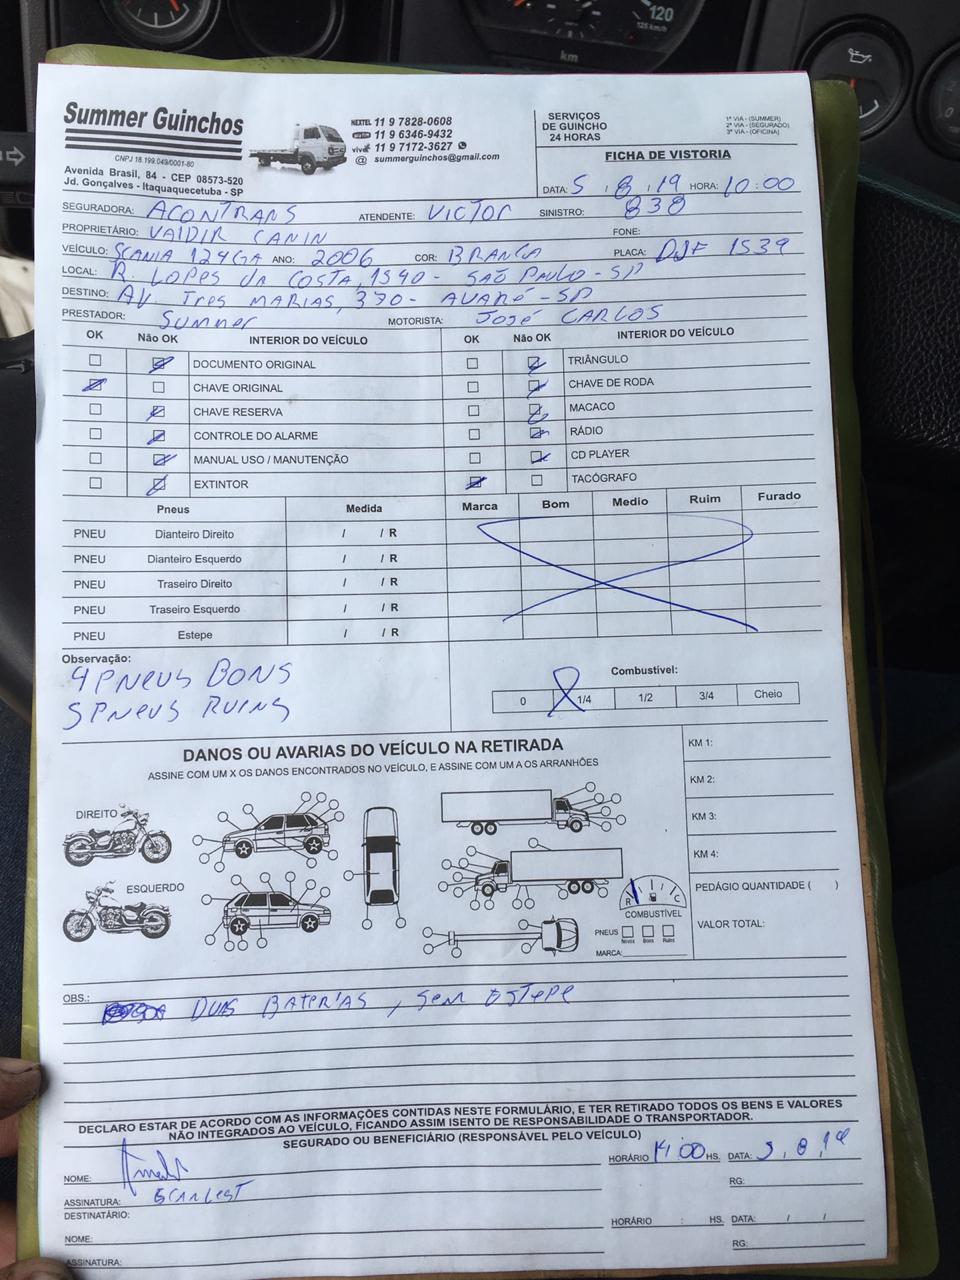 120
125 km/h
km
Summer Guinchos
CNPJ 18.199.049/0001-80
Avenida Brasil, 84 - CEP 08573-520
Jd. Gonçalves - Itaquaquecetuba - SP
NEXTEL 11 9 7828-0608
11 9 6346-9432
vivo 11 9 7172-3627
@ summerguinchos@gmail.com
SERVIÇOS
DE GUINCHO
24 HORAS
1ª VIA - (SUMMER)
2ª VIA - (SEGURADO)
3ª VIA - (OFICINA)
FICHA DE VISTORIA
DATA: 5 / 8 / 19 HORA: 10:00
SEGURADORA: ACONTRANS ATENDENTE: VICTOR SINISTRO: 838
PROPRIETÁRIO: VALDIR CANIN FONE:
VEÍCULO: SCANIA 124GA ANO: 2006 COR: BRANCA PLACA: DJF 1539
LOCAL: R. LOPES DA COSTA, 1540 - SAÕ PAULO - SP
DESTINO: AV. TRES MARIAS, 370 - AVARÉ - SP
PRESTADOR: Summer MOTORISTA: JOSÉ CARLOS
OK Não OK INTERIOR DO VEÍCULO OK Não OK INTERIOR DO VEÍCULO
DOCUMENTO ORIGINAL TRIÂNGULO
CHAVE ORIGINAL CHAVE DE RODA
CHAVE RESERVA MACACO
CONTROLE DO ALARME RÁDIO
MANUAL USO / MANUTENÇÃO CD PLAYER
EXTINTOR TACÓGRAFO
Pneus Medida Marca Bom Medio Ruim Furado
PNEU Dianteiro Direito / / R
PNEU Dianteiro Esquerdo / / R
PNEU Traseiro Direito / / R
PNEU Traseiro Esquerdo / / R
PNEU Estepe / / R
Observação:
4 PNEUS BONS
5 PNEUS RUINS
Combustível:
0 1/4 1/2 3/4 Cheio
DANOS OU AVARIAS DO VEÍCULO NA RETIRADA
ASSINE COM UM X OS DANOS ENCONTRADOS NO VEÍCULO, E ASSINE COM UM A OS ARRANHÕES
DIREITO
ESQUERDO
R C
COMBUSTÍVEL
PNEUS
Novos Bons Ruins
MARCA:
KM 1:
KM 2:
KM 3:
KM 4:
PEDÁGIO QUANTIDADE ( )
VALOR TOTAL:
OBS.: DUAS BATERIAS, SEM ESTEPE
DECLARO ESTAR DE ACORDO COM AS INFORMAÇÕES CONTIDAS NESTE FORMULÁRIO, E TER RETIRADO TODOS OS BENS E VALORES
NÃO INTEGRADOS AO VEÍCULO, FICANDO ASSIM ISENTO DE RESPONSABILIDADE O TRANSPORTADOR.
SEGURADO OU BENEFICIÁRIO (RESPONSÁVEL PELO VEÍCULO)
HORÁRIO 14:00 HS. DATA: 5 / 8 / 19
NOME:
RG:
ASSINATURA:
DESTINATÁRIO:
HORÁRIO : HS. DATA: / /
NOME:
RG:
ASSINATURA: